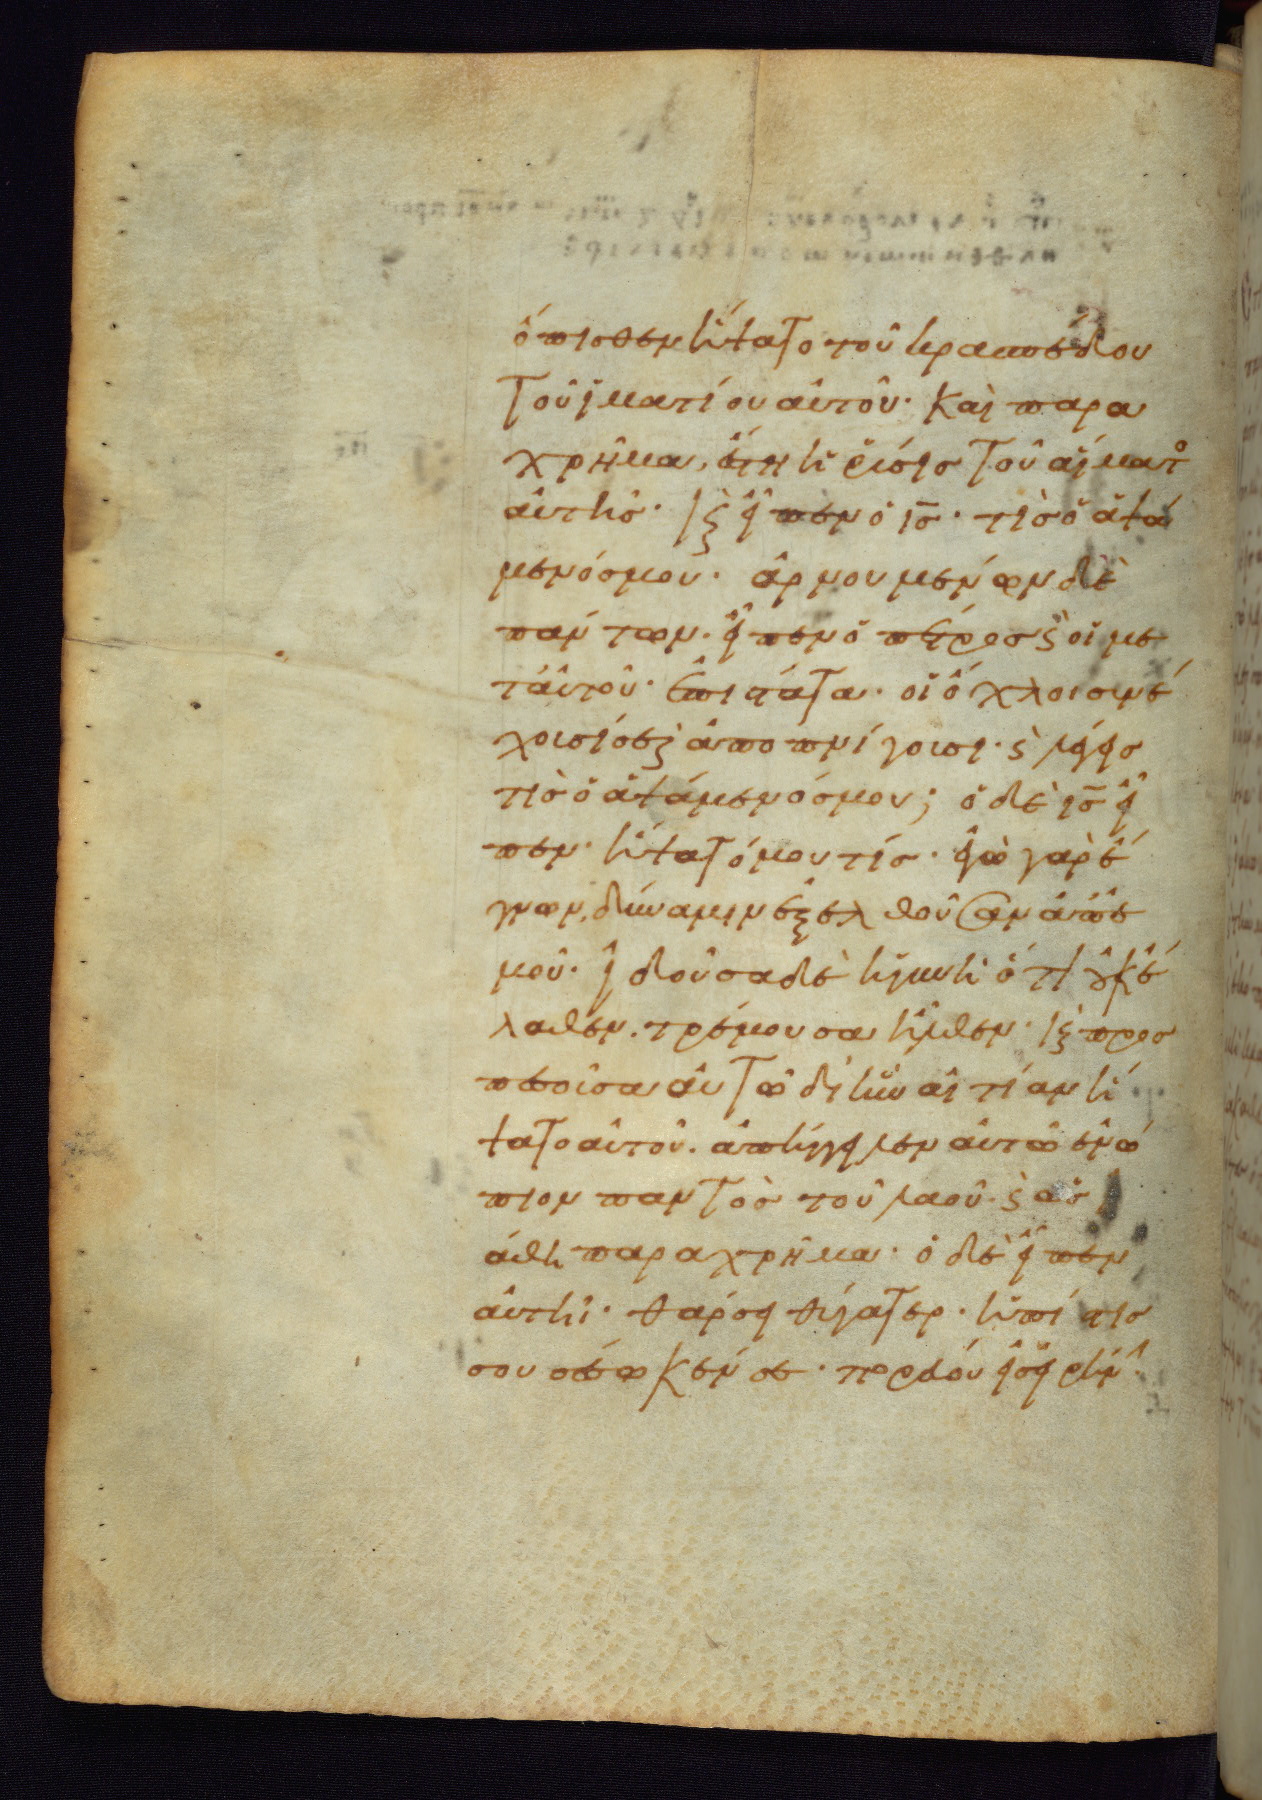 ὄπισθεν ἥψατο τοῦ κρασπέδου
τοῦ ἱματίου αὐτοῦ· καὶ παρα
χρῆμα ἔστη ἡ ῥύσις τοῦ αἵματο
αὐτῆς· κ(αὶ) εἶπεν ὁ ις̅· τίς ὁ ἁψά
μενός μου· ἀρνουμένων δὲ
πάντων· εἶπεν ὁ πέτρος κ(αὶ) οἱ με
τ' αὐτοῦ· ἐπιστάτα· οἱ ὄχλοι συνέ
χουσί σε κ(αὶ) ἀποπνίγουσι· κ(αὶ) λέγεις
τίς ὁ ἁψάμενός μου; ὁ δὲ ις̅ εἶ
πεν· ἥψατό μου τίς· ἐγὼ γὰρ ἔ
γνων, δύναμιν ἐξελθοῦσαν ἀπ' ἐ
μοῦ· ἰδοῦσα δὲ ἡ γυνὴ ὅτι οὐκ ἔ
λαθεν· τρέμουσα ἦλθεν· κ(αὶ) προσ
πεσοῦσα αὐτῶ δι' ἣν αἰτίαν ἥ
ψατο αὐτοῦ· ἀπήγγειλεν αὐτῶ ἐνώ
πιον παντὸς τοῦ λαοῦ· κ(αὶ) ὡς
ἰάθη παραχρῆμα· ὁ δὲ εἶπεν
αὐτῆ· θάρσει θύγατερ· ἡ πίστις
σου σέσωκέν σε· πορεύου εἰς εἰρήνην·